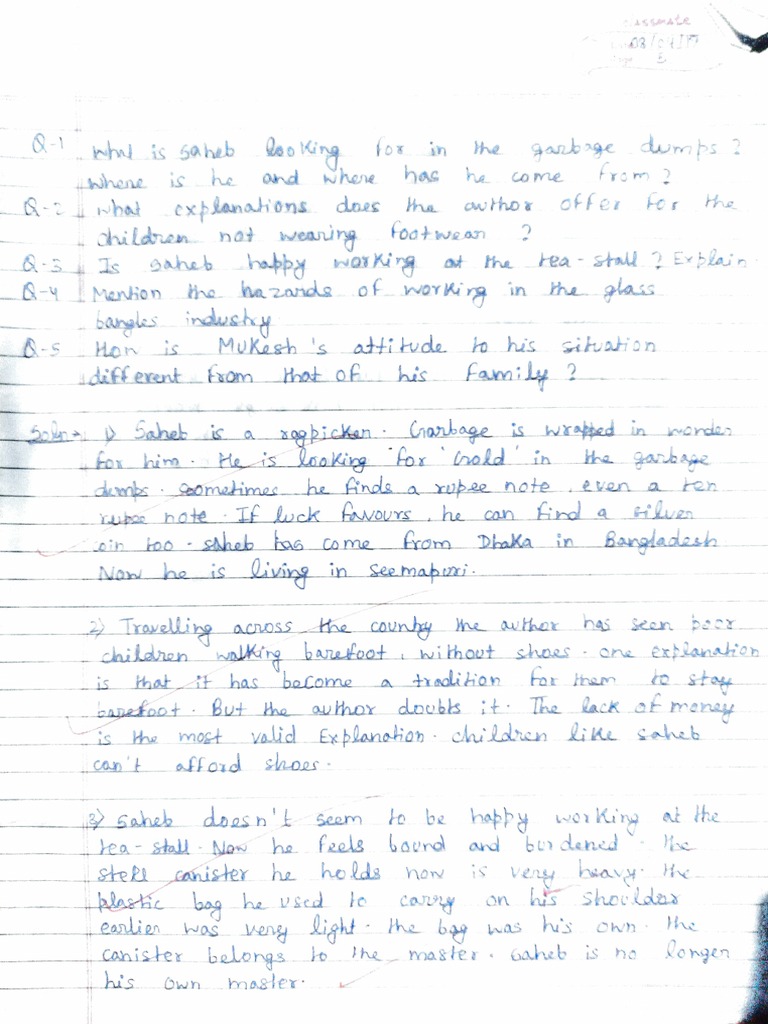 classmate
Q-1 What is saheb looking for in the garbage dumps?
where is he and where has he come from?
Q-2 what explanations does the author offer for the
children not wearing footwear ?
Q-3 Is saheb happy working at the tea-stall? Explain.
Q-4 Mention the hazards of working in the glass
bangles industry
Q-5 How is Mukesh's attitude to his situation
different from that of his family?
Soln→ 1) Saheb is a ragpicker. Garbage is wrapped in wonder
for him. He is looking for 'Gold' in the garbage
dumps. soometimes he finds a rupee note, even a ten
rupee note. If luck favours, he can find a silver
oin too. saheb has come from Dhaka in Bangladesh
Now he is living in seemapuri.
2) Travelling across the country the author has seen poor
children walking barefoot, without shoes. one explanation
is that it has become a tradition for them to stay
barefoot. But the author doubts it. The lack of money
is the most valid Explanation. children like saheb
can't afford shoes.
3) saheb doesn't seem to be happy working at the
tea-stall. Now he feels bound and burdened. the
stell canister he holds now is very heavy. the
plastic bag he used to carry on his shoulder
earlier was very light. the bag was his own. the
canister belongs to the master. saheb is no longer
his own master.